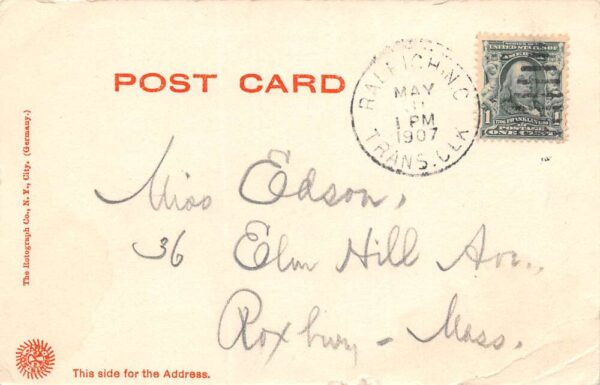 POST CARD
RALEIGH, N.C.
MAY
1 PM
1907
TRANS. CLK
UNITED STATES OF
AMERICA
1 FRANKLIN 1
POSTAGE
ONE CENT
Miss Edson,
36 Elm Hill Ave.,
Roxbury - Mass.
The Rotograph Co., N. Y., City. (Germany.)
This side for the Address.